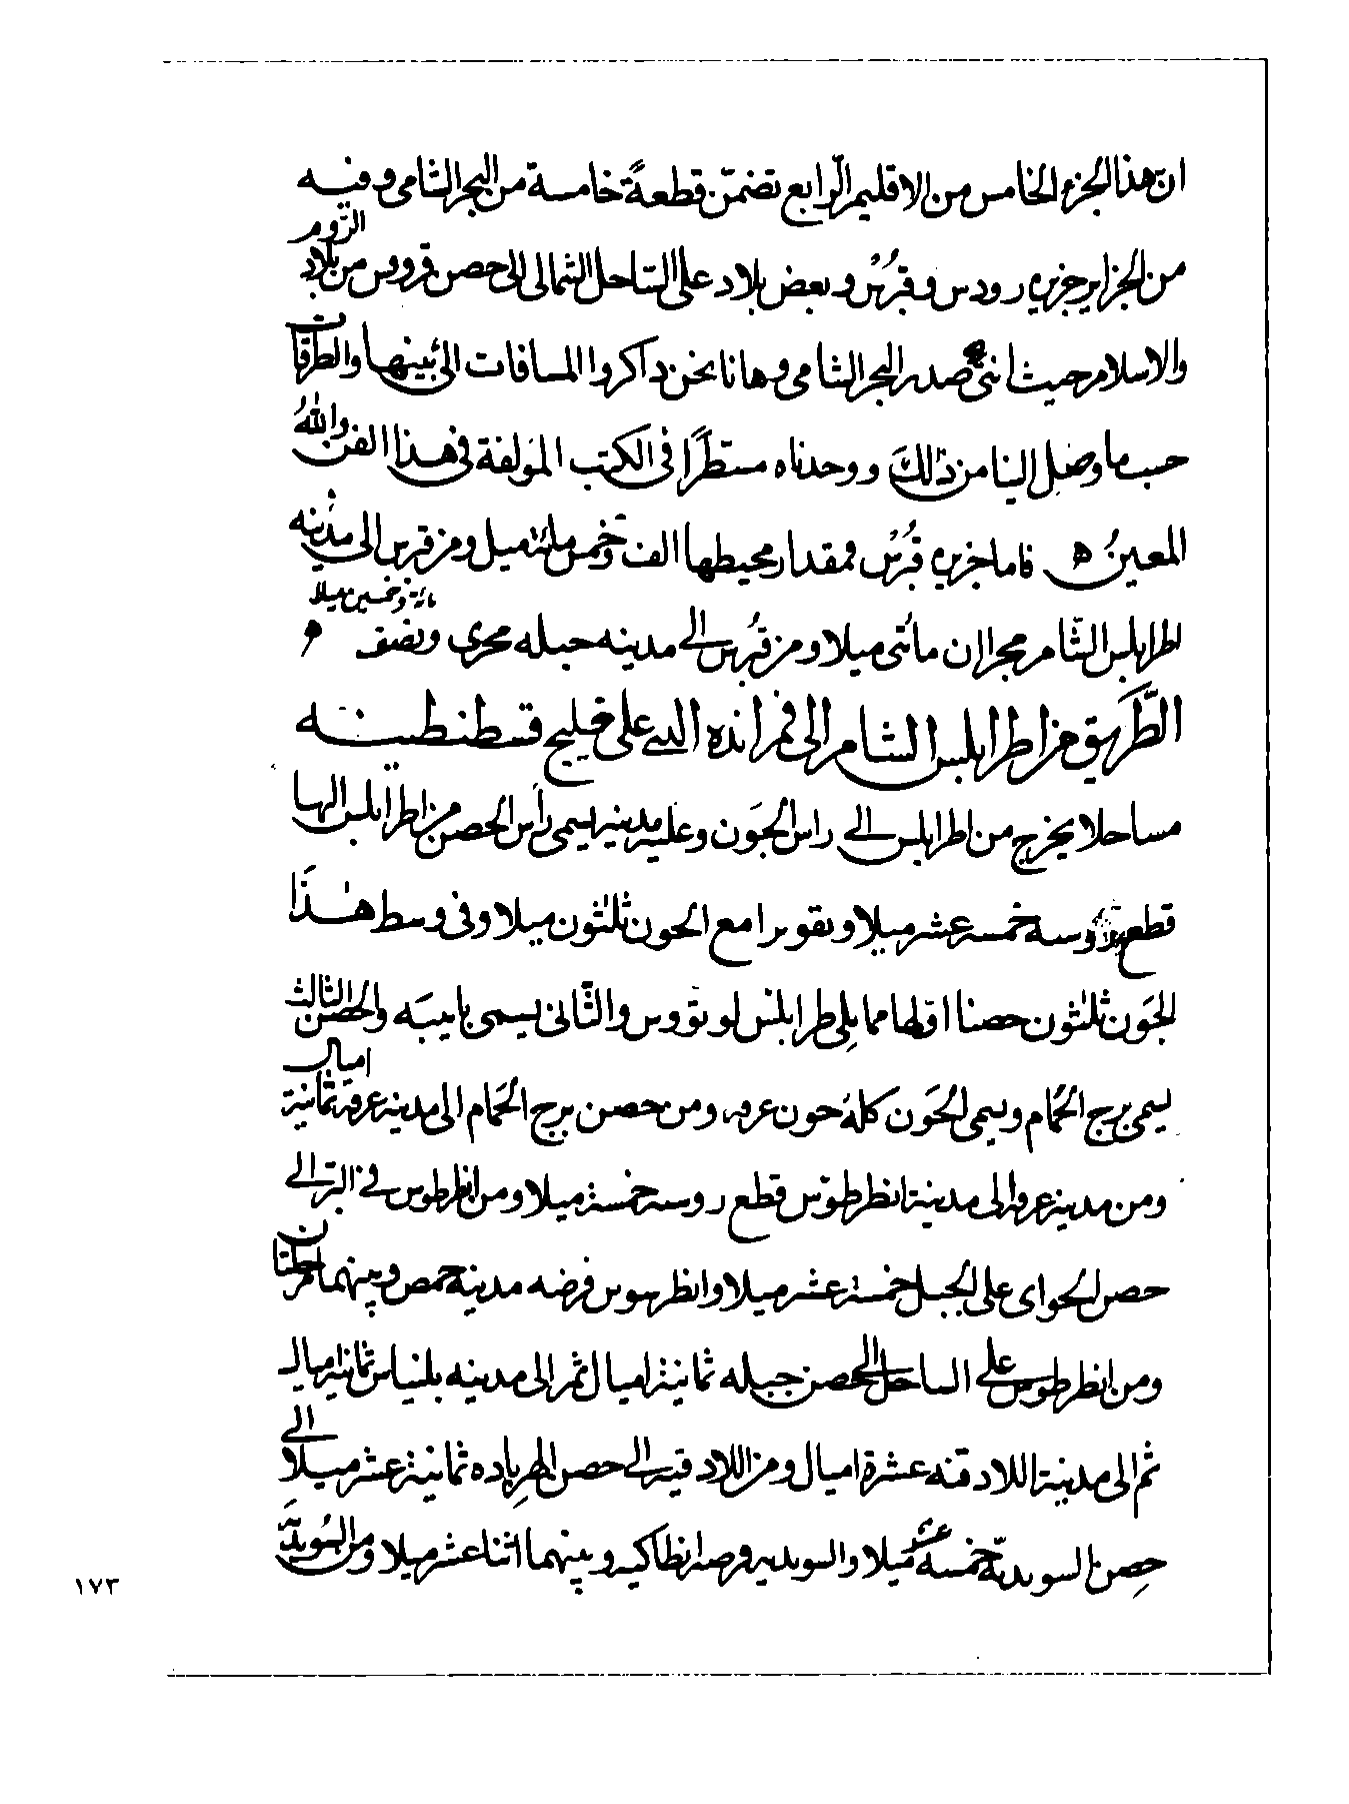 ان هذا الجزء الخامس من الاقليم الرّابع تضمّن قطعةً خامسة من البحر الشامى وفيه
من الجزاير جزيره رودس وقبرُس وبعض بلاد على السّاحل الشمالى الى حصن قروس من بلاد الرّوم
والاسلام حيث انثنى صدر البحر الشامى وها نا نحن داكروا المسافات التى بينها والطرقات
حسب ما وصل الينا من ذلك ووجدناه مستطرًا فى الكتب المؤلفة فى هذا الفن واللهُ
المعينُ ه فاما جزيره قبرُس فمقدار محيطها الف وخمس مائة ميل ومن قبرس الى مدينه
اطرابلس الشّام مجراان مائتى ميلا ومن قبرس الى مدينه جبله مجرى ونصف مائة وخمسين ميلا ه
الطّريق من اطرابلس الشام الى فم ابده التى على خليج قسطنطينيه
مساحلا يخرج من اطرابلس الى راس الجَون وعليه مدينه تسمى رأس الحصن من اطرابلس اليها
قطع روسيه خمسه عشر ميلا وتقويرا مع الجون ثلثون ميلا وفى وسط هذا
الجَون ثلثون حصنا اولها مما يلى طرابلس لوتوروس والثّانى يسمى بابيَه والحصن الثالث
يسمى برج الحَمام ويسمى الجَون كلهُ جون عرقه ومن حصن برج الحَمام الى مدينه عرقة ثمانية اميال
ومن مدينة عرقه الى مدينة انطرطوس قطع روسيه خمسة ميلا ومن انطرطوس فى البرّ الى
حصن الحواى على الجبل خمسة عشر ميلا وانطرطوس فرضه مدينة حمص وبينهما مرحلتان
ومن انطرطوس على الساحل الى حصن جبله ثمانية اميال ثم الى مدينه بلنياس ثمانية اميال
ثم الى مدينة اللادقيه عشرة اميال ومن اللادقيه الى حصن الهرياده ثمانية عشر ميلا الى
حصن السويديّه خمسه عشر ميلا والسويديه فرضه انطاكيه وبينهما اثنا عشر ميلا ومن السُويديّه
١٧٣